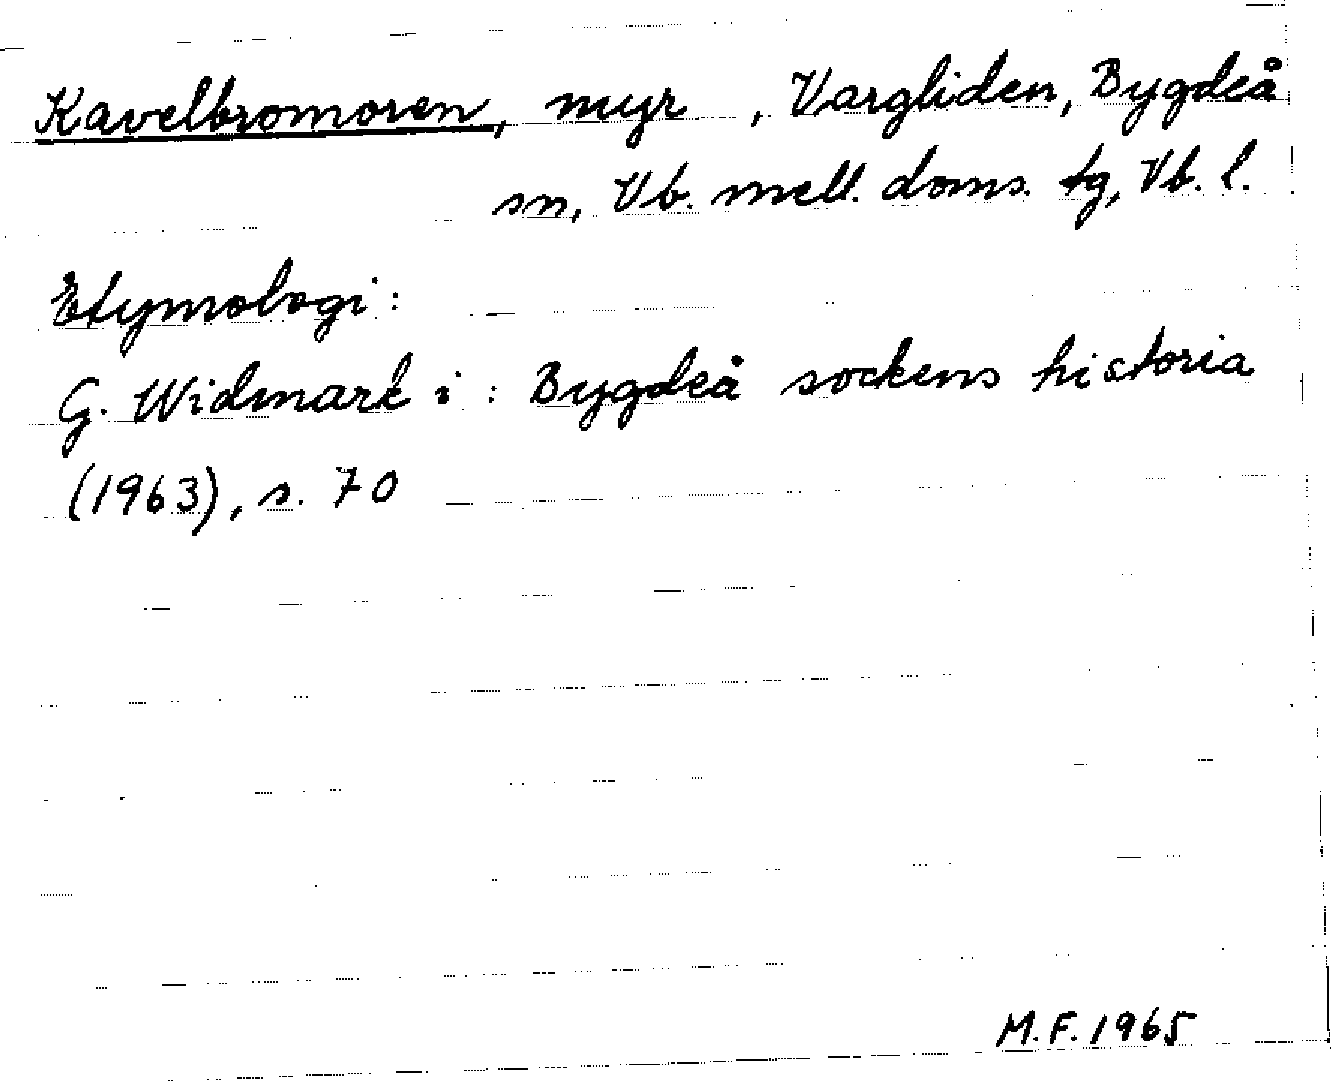 Kavelbromoren, myr , Vargliden, Bygdeå
sn, Vb. mell. doms. tg, Vb. l.
Etymologi:
G. Widmark i : Bygdeå sockens historia
(1963), s. 70
M.F. 1965